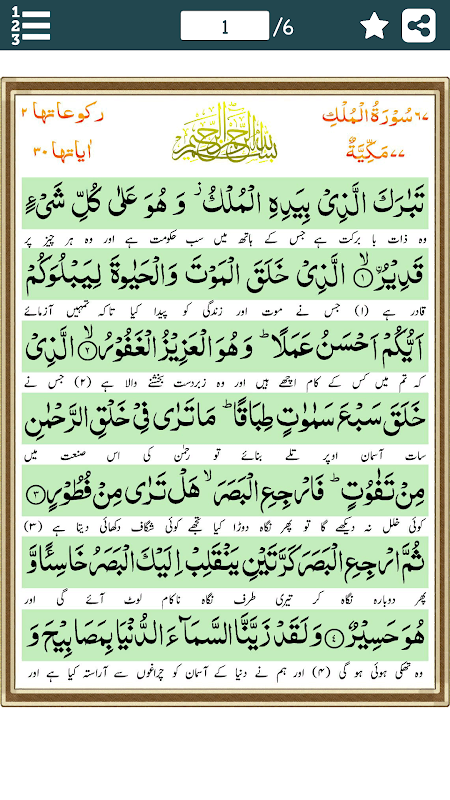 1
2
3
1 /6
٦٧ سُوْرَةُ الْمُلْكِ
رکوعاتها ۲
٧٧ مَكِّيَّةٌ
اٰیاتها ۳۰
بسم الله الرحمن الرحيم
تَبٰرَكَ الَّذِیْ بِیَدِهِ الْمُلْكُ ؗ وَ هُوَ عَلٰی كُلِّ شَیْءٍ
وہ ذات با برکت ہے جس کے ہاتھ میں سب حکومت ہے اور وہ ہر چیز پر
قَدِیْرُۙ ۱ الَّذِیْ خَلَقَ الْمَوْتَ وَالْحَیٰوةَ لِیَبْلُوَكُمْ
قادر ہے (۱) جس نے موت اور زندگی کو پیدا کیا تاکہ تمہیں آزمائے
اَیُّكُمْ اَحْسَنُ عَمَلًا ؕ وَ هُوَ الْعَزِیْزُ الْغَفُوْرُۙ ۲ الَّذِیْ
کہ تم میں کس کے کام اچھے ہیں اور وہ زبردست بخشنے والا ہے (۲) جس نے
خَلَقَ سَبْعَ سَمٰوٰتٍ طِبَاقًا ؕ مَا تَرٰی فِیْ خَلْقِ الرَّحْمٰنِ
سات آسمان اوپر تلے بنائے تو رحمٰن کی اس صنعت میں
مِنْ تَفٰوُتٍ ؕ فَارْجِعِ الْبَصَرَ ۙ هَلْ تَرٰی مِنْ فُطُوْرٍ ۳
کوئی خلل نہ دیکھے گا تو پھر نگاہ دوڑا کیا تجھے کوئی شگاف دکھائی دیتا ہے (۳)
ثُمَّ ارْجِعِ الْبَصَرَ كَرَّتَیْنِ یَنْقَلِبْ اِلَیْكَ الْبَصَرُ خَاسِئًا وَّ
پھر دوبارہ نگاہ کر تیری طرف نگاہ ناکام لوٹ آئے گی اور
هُوَ حَسِیْرٌ ۴ وَ لَقَدْ زَیَّنَّا السَّمَآءَ الدُّنْیَا بِمَصَابِیْحَ وَ
وہ تھکی ہوئی ہو گی (۴) اور ہم نے دنیا کے آسمان کو چراغوں سے آراستہ کیا ہے اور